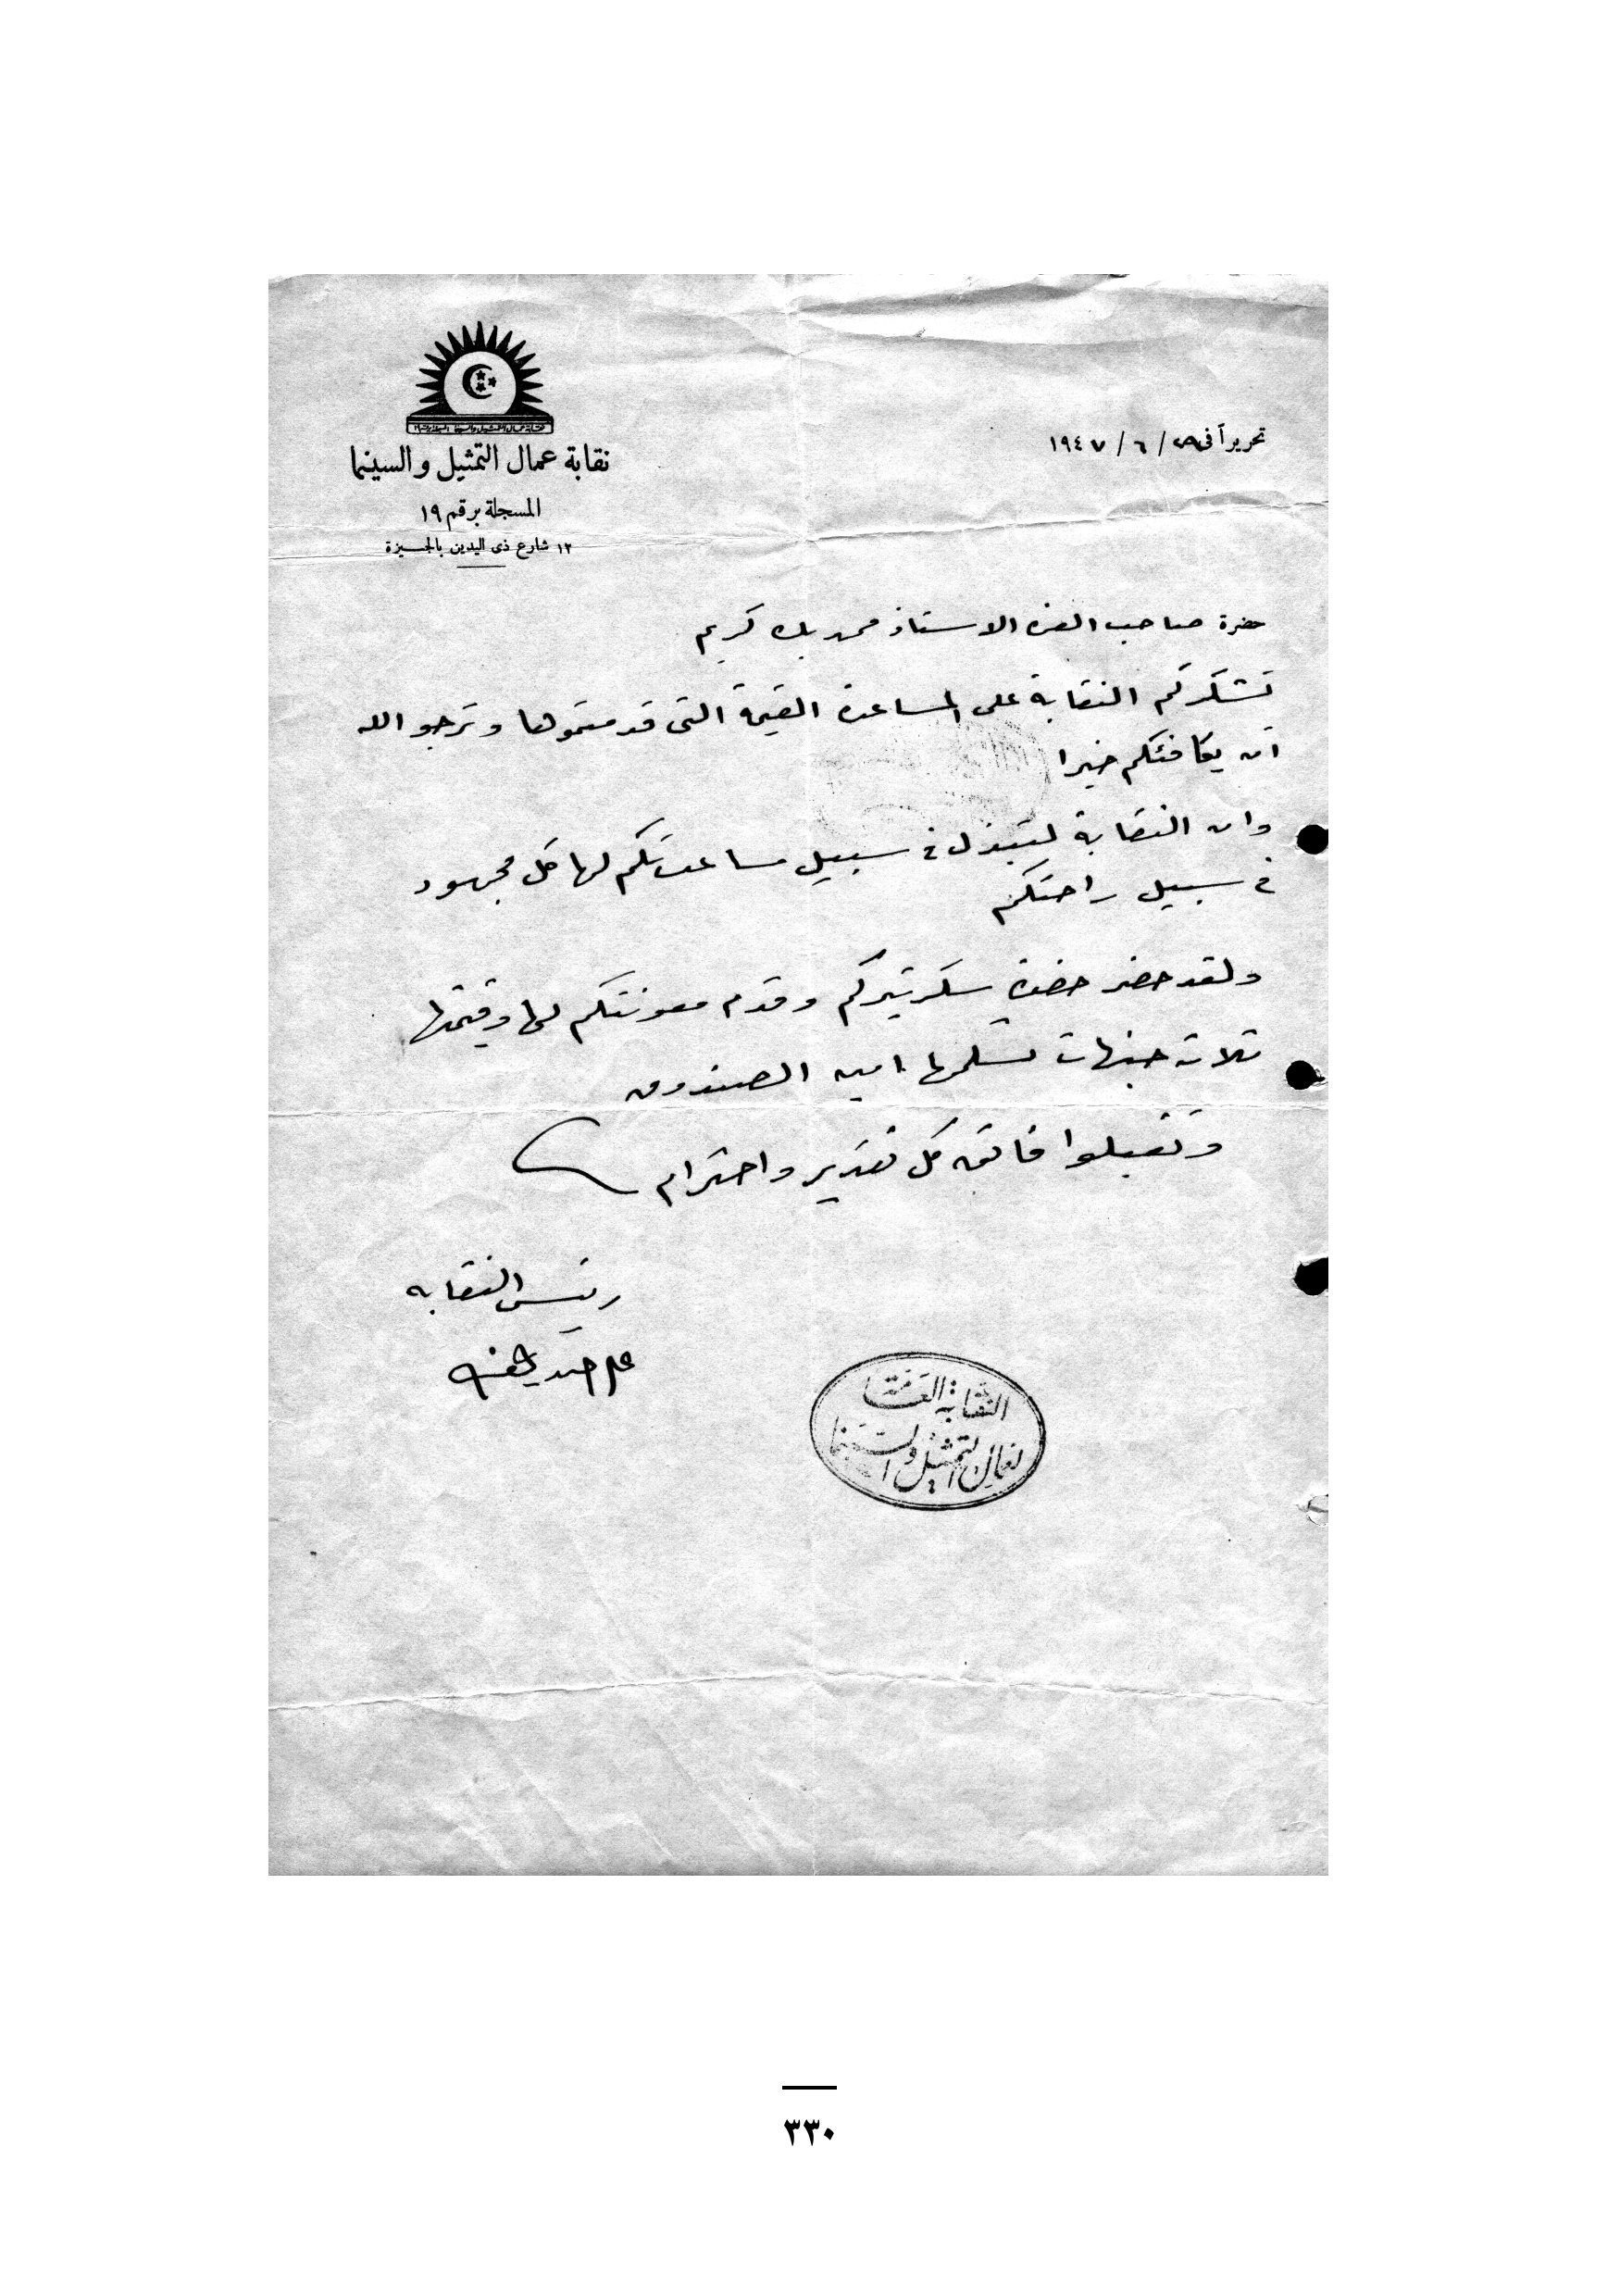 نقابة عمال التمثيل والسينما
المسجلة برقم ١٩
١٢ شارع ذى اليدين بالجيزة
تحريراً فى / ٦ / ١٩٤٧
حضرة صاحب العزة الاستاذ محمد بك كريم
تشكركم النقابة على المساعدة القيمة التى قدمتموها وترجو الله
ان يكافئكم خيرا
وان النقابة لتبذل فى سبيل مساعدتكم لها كل مجهود
فى سبيل راحتكم
ولقد حضر حضرة سكرتيركم وقدم معونتكم لها وقيمتها
ثلاثة جنيهات تسلمها امين الصندوق
وتقبلوا فائق كل تقدير واحترام
رئيس النقابه
النقابة العامة
لعمال التمثيل والسينما
٣٣٠